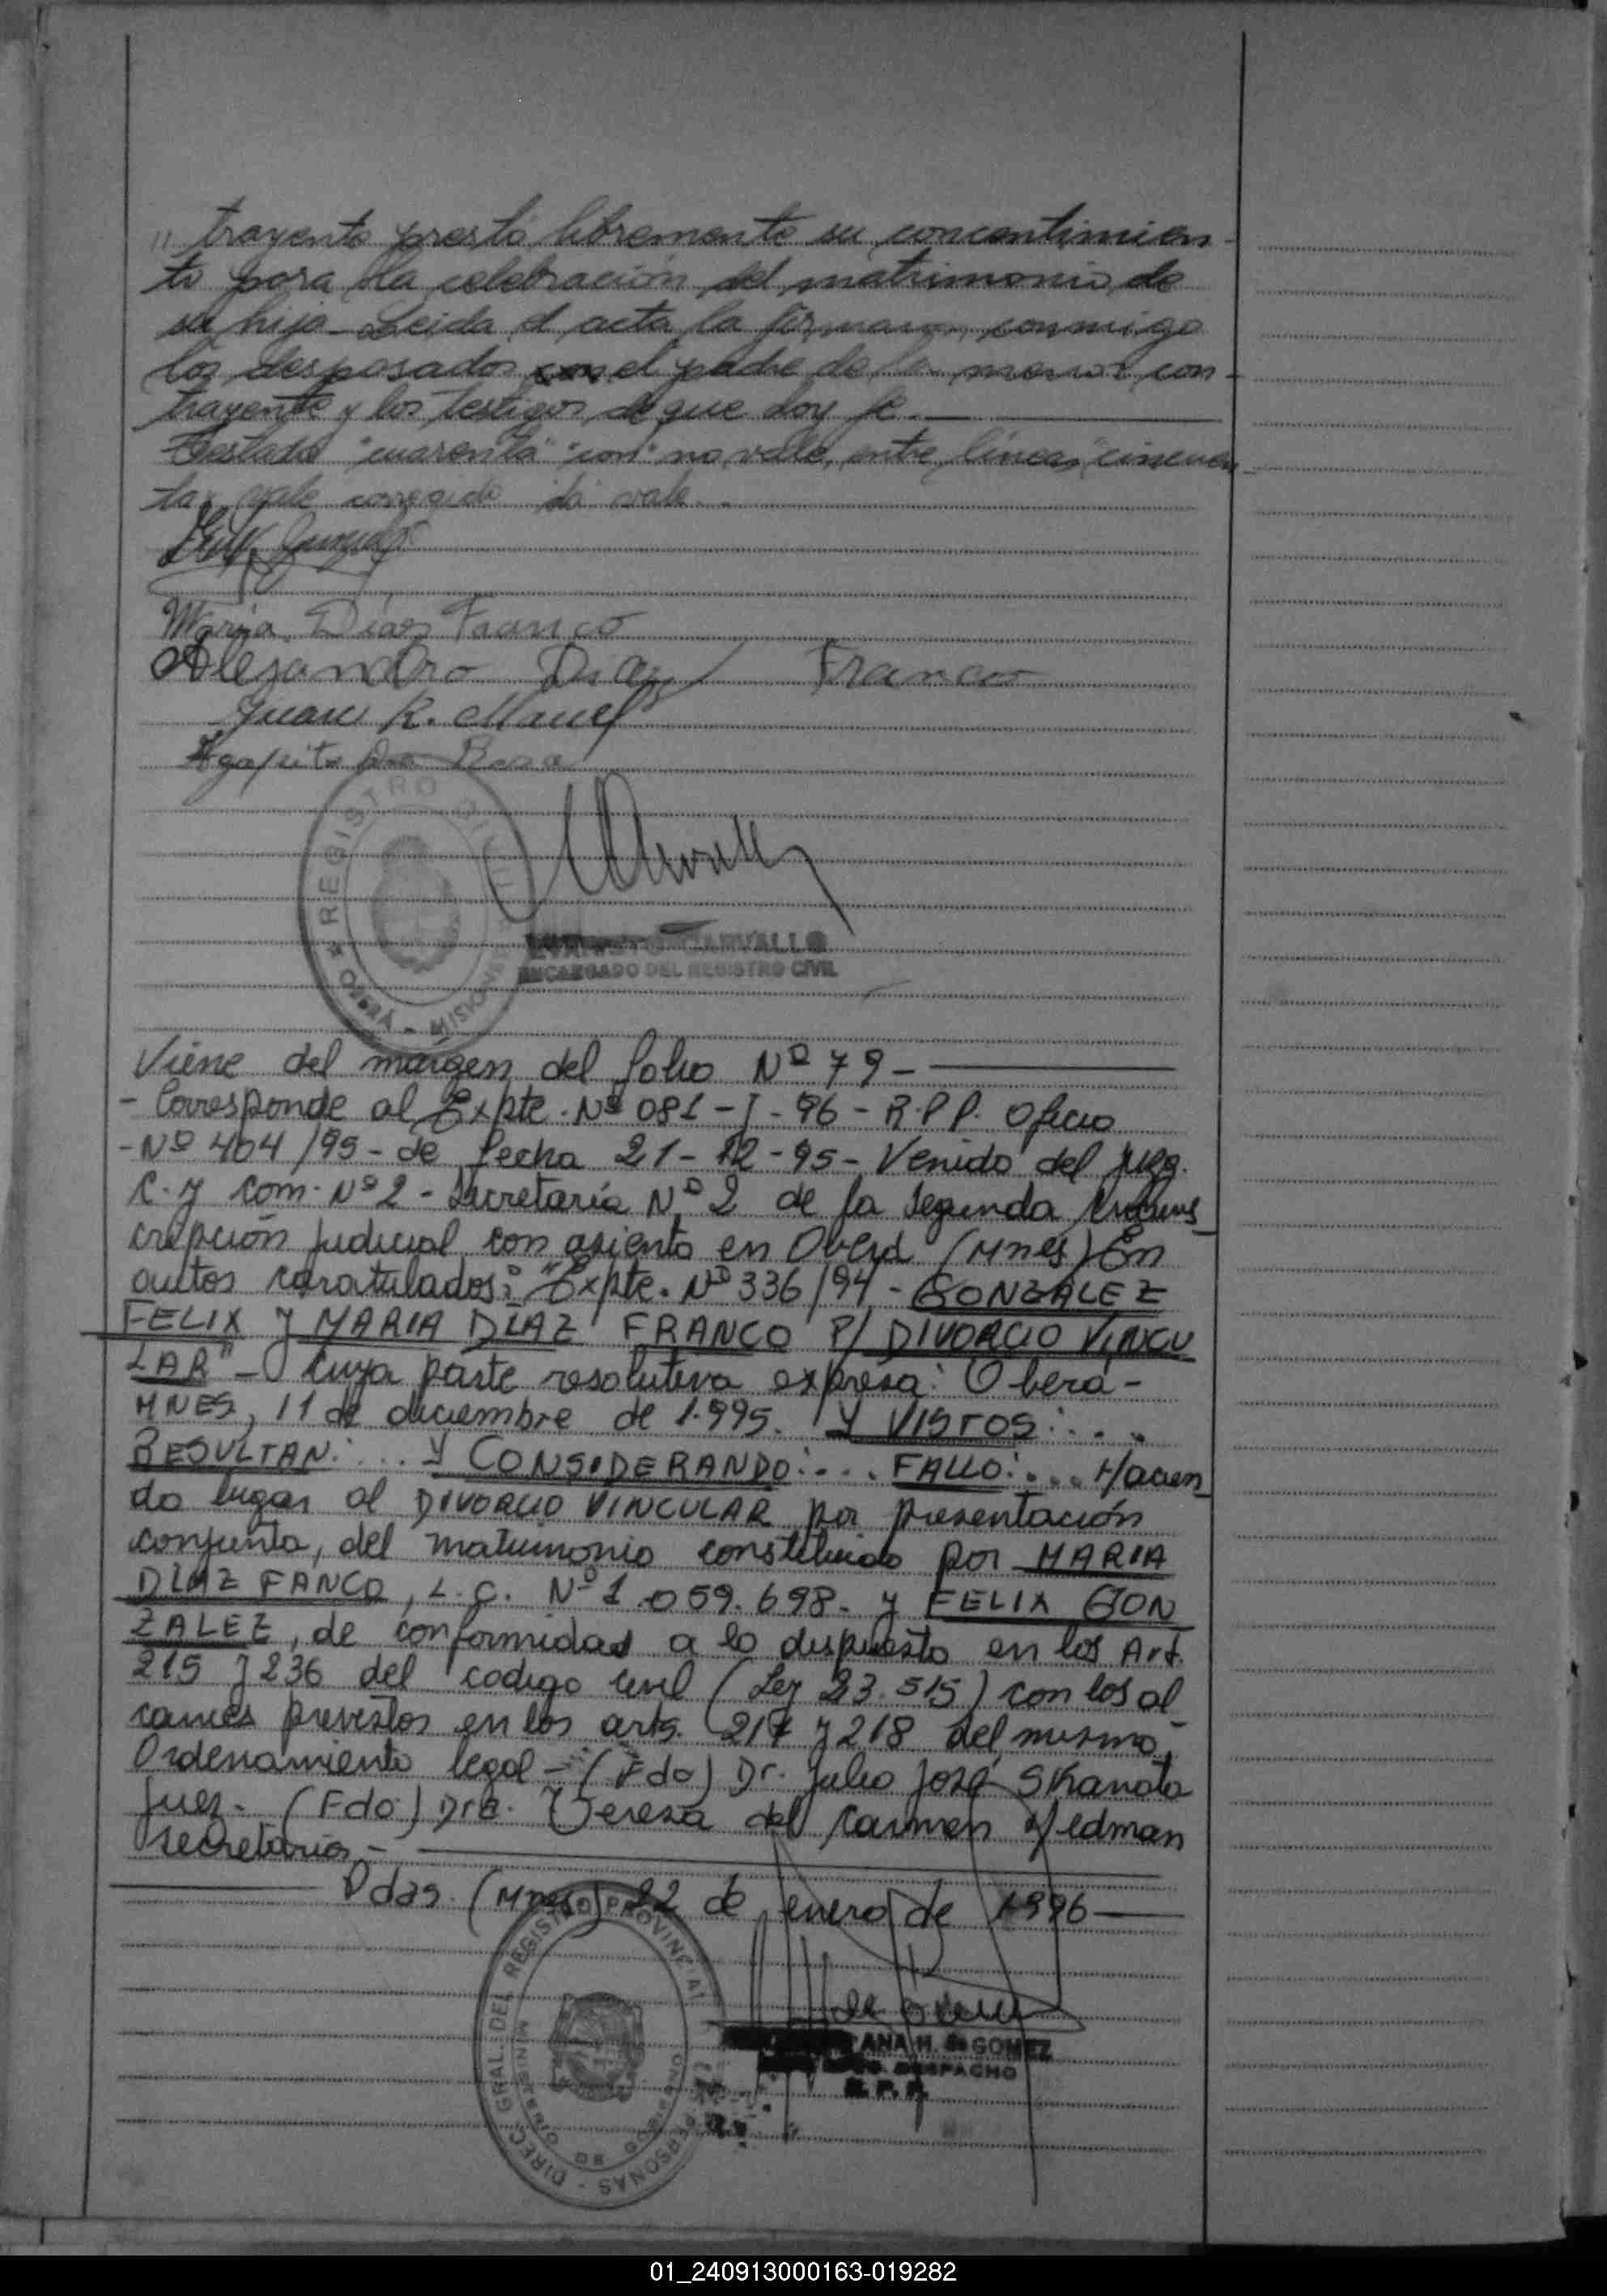 // trayente prestó libremente su concentimien-
to para la celebración del matrimonio de
su hija_ Leida el acta la firmaron conmigo
los desposados con el padre de la menor con-
trayente y los testigos de que doy fe.
Testado "cuarenta" "con" no vale, entre lineas "cincuen-
ta" vale corregido vale.
Maria Díaz Franco
Alejandro Diaz Franco
Juan R.
Agapito Da Rosa
REGISTRO CIVIL
OBERÁ - MISIONES
CARVALLO
ENCARGADO DEL REGISTRO CIVIL
Viene del margen del folio Nº 79 -
- Corresponde al Expte. Nº 081-J-96 - R.P.P. Oficio
- Nº 404/95 - de fecha 21-12-95 - Venido del juzg.
C. y Com. Nº 2 - Secretaría Nº 2 de la segunda Circuns_
cripción judicial con asiento en Oberá (Mnes) En
autos caratulados: "Expte. Nº 336/94 - GONZALEZ
FELIX Y MARIA DIAZ FRANCO P/ DIVORCIO VINCU
LAR" - Cuya parte resolutiva expresa: Oberá -
MNES, 11 de diciembre de 1.995. Y VISTOS: . . .
RESULTAN: ... Y CONSIDERANDO: ... FALLO: ... Hacien_
do lugar al DIVORCIO VINCULAR por presentación
conjunta, del matrimonio constituido por MARIA
DIAZ FANCO, L.C. Nº 1.059.698. y FELIX GON
ZALEZ, de conformidad a lo dispuesto en los Art.
215 y 236 del codigo civil (Ley 23.515) con los al_
cances previstos en los arts. 217 y 218 del mismo
Ordenamiento legal - (Fdo) Dr. Julio José Skanata
Juez. (Fdo) Dra. Teresa del Carmen Heldman
Secretaria -
Pdas. (Mnes) 22 de enero de 1996
DIRECC. GRAL. DEL REGISTRO PROVINCIAL
PERSONAS
MINISTERIO DE GOBIERNO
ANA M. de GOMEZ
DESPACHO
R. P. P.
01_240913000163-019282